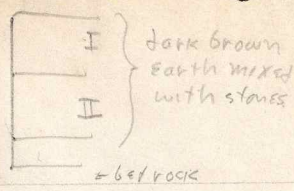 I
II
dark brown
earth mixed
with stones
= bedrock